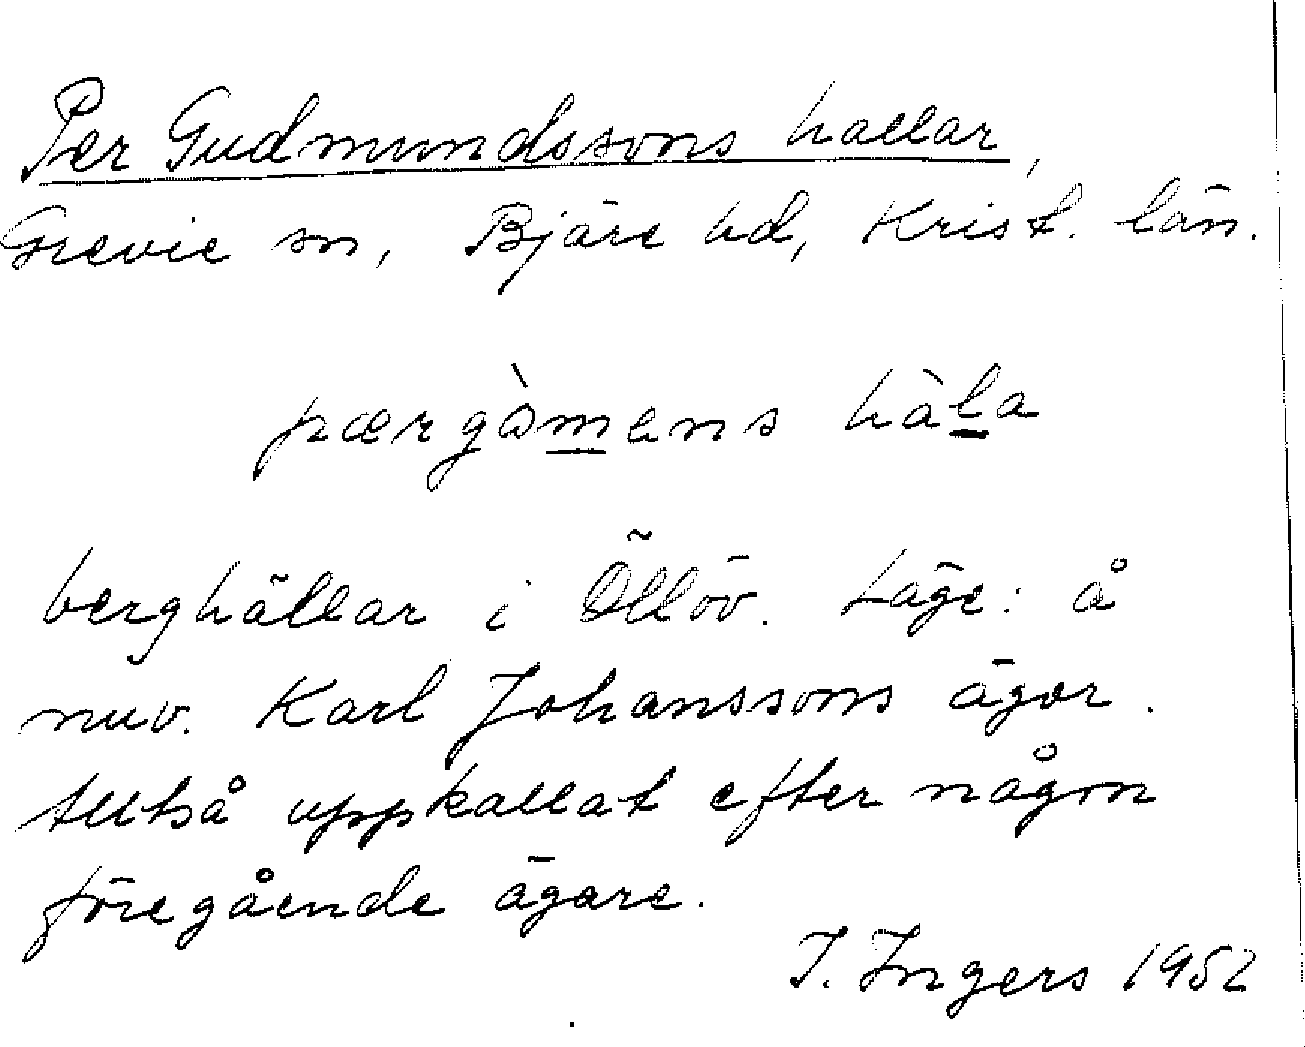 Per Gudmundssons hallar,
Grevie sn, Bjäre hd, Krist. län.
pærgòmens hàla
berghällar i Öllöv. Läge: å
nuv. Karl Johanssons ägor.
Alltså uppkallat efter någon
föregående ägare.
I. Ingers 1952